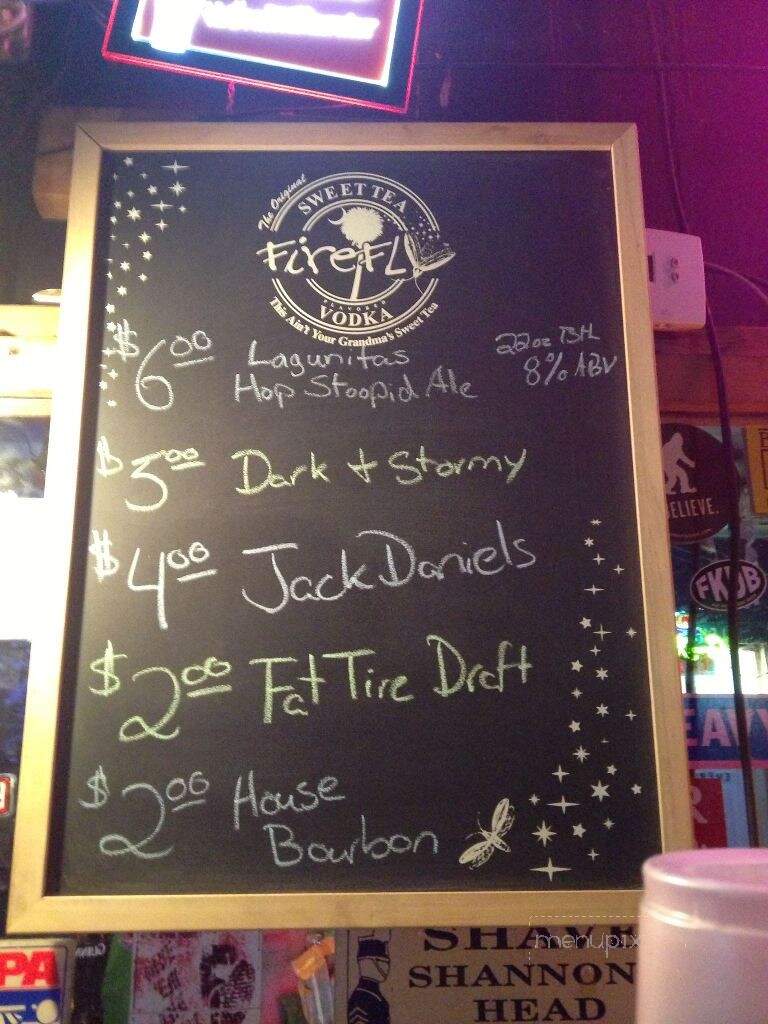 The Original
SWEET TEA
FIREFLY
FLAVORED
VODKA
This Ain't Your Grandma's Sweet Tea
$6.00 Lagunitas 22oz Btl
Hop Stoopid Ale 8% ABV
$5.00 Dark + Stormy
$4.00 Jack Daniels
$2.00 Fat Tire Draft
$2.00 House
Bourbon
BELIEVE.
EAVY
PA
SHAVE
SHANNON
HEAD
menupix